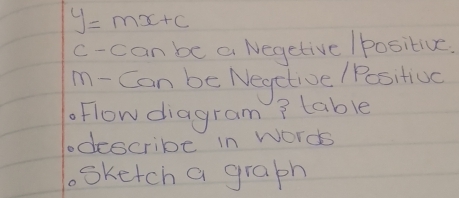 y = mx+c
c - can be a Negetive / positive.
m - Can be Negetive / Positive
• Flow diagram ? table
• describe in words
• Sketch a graph